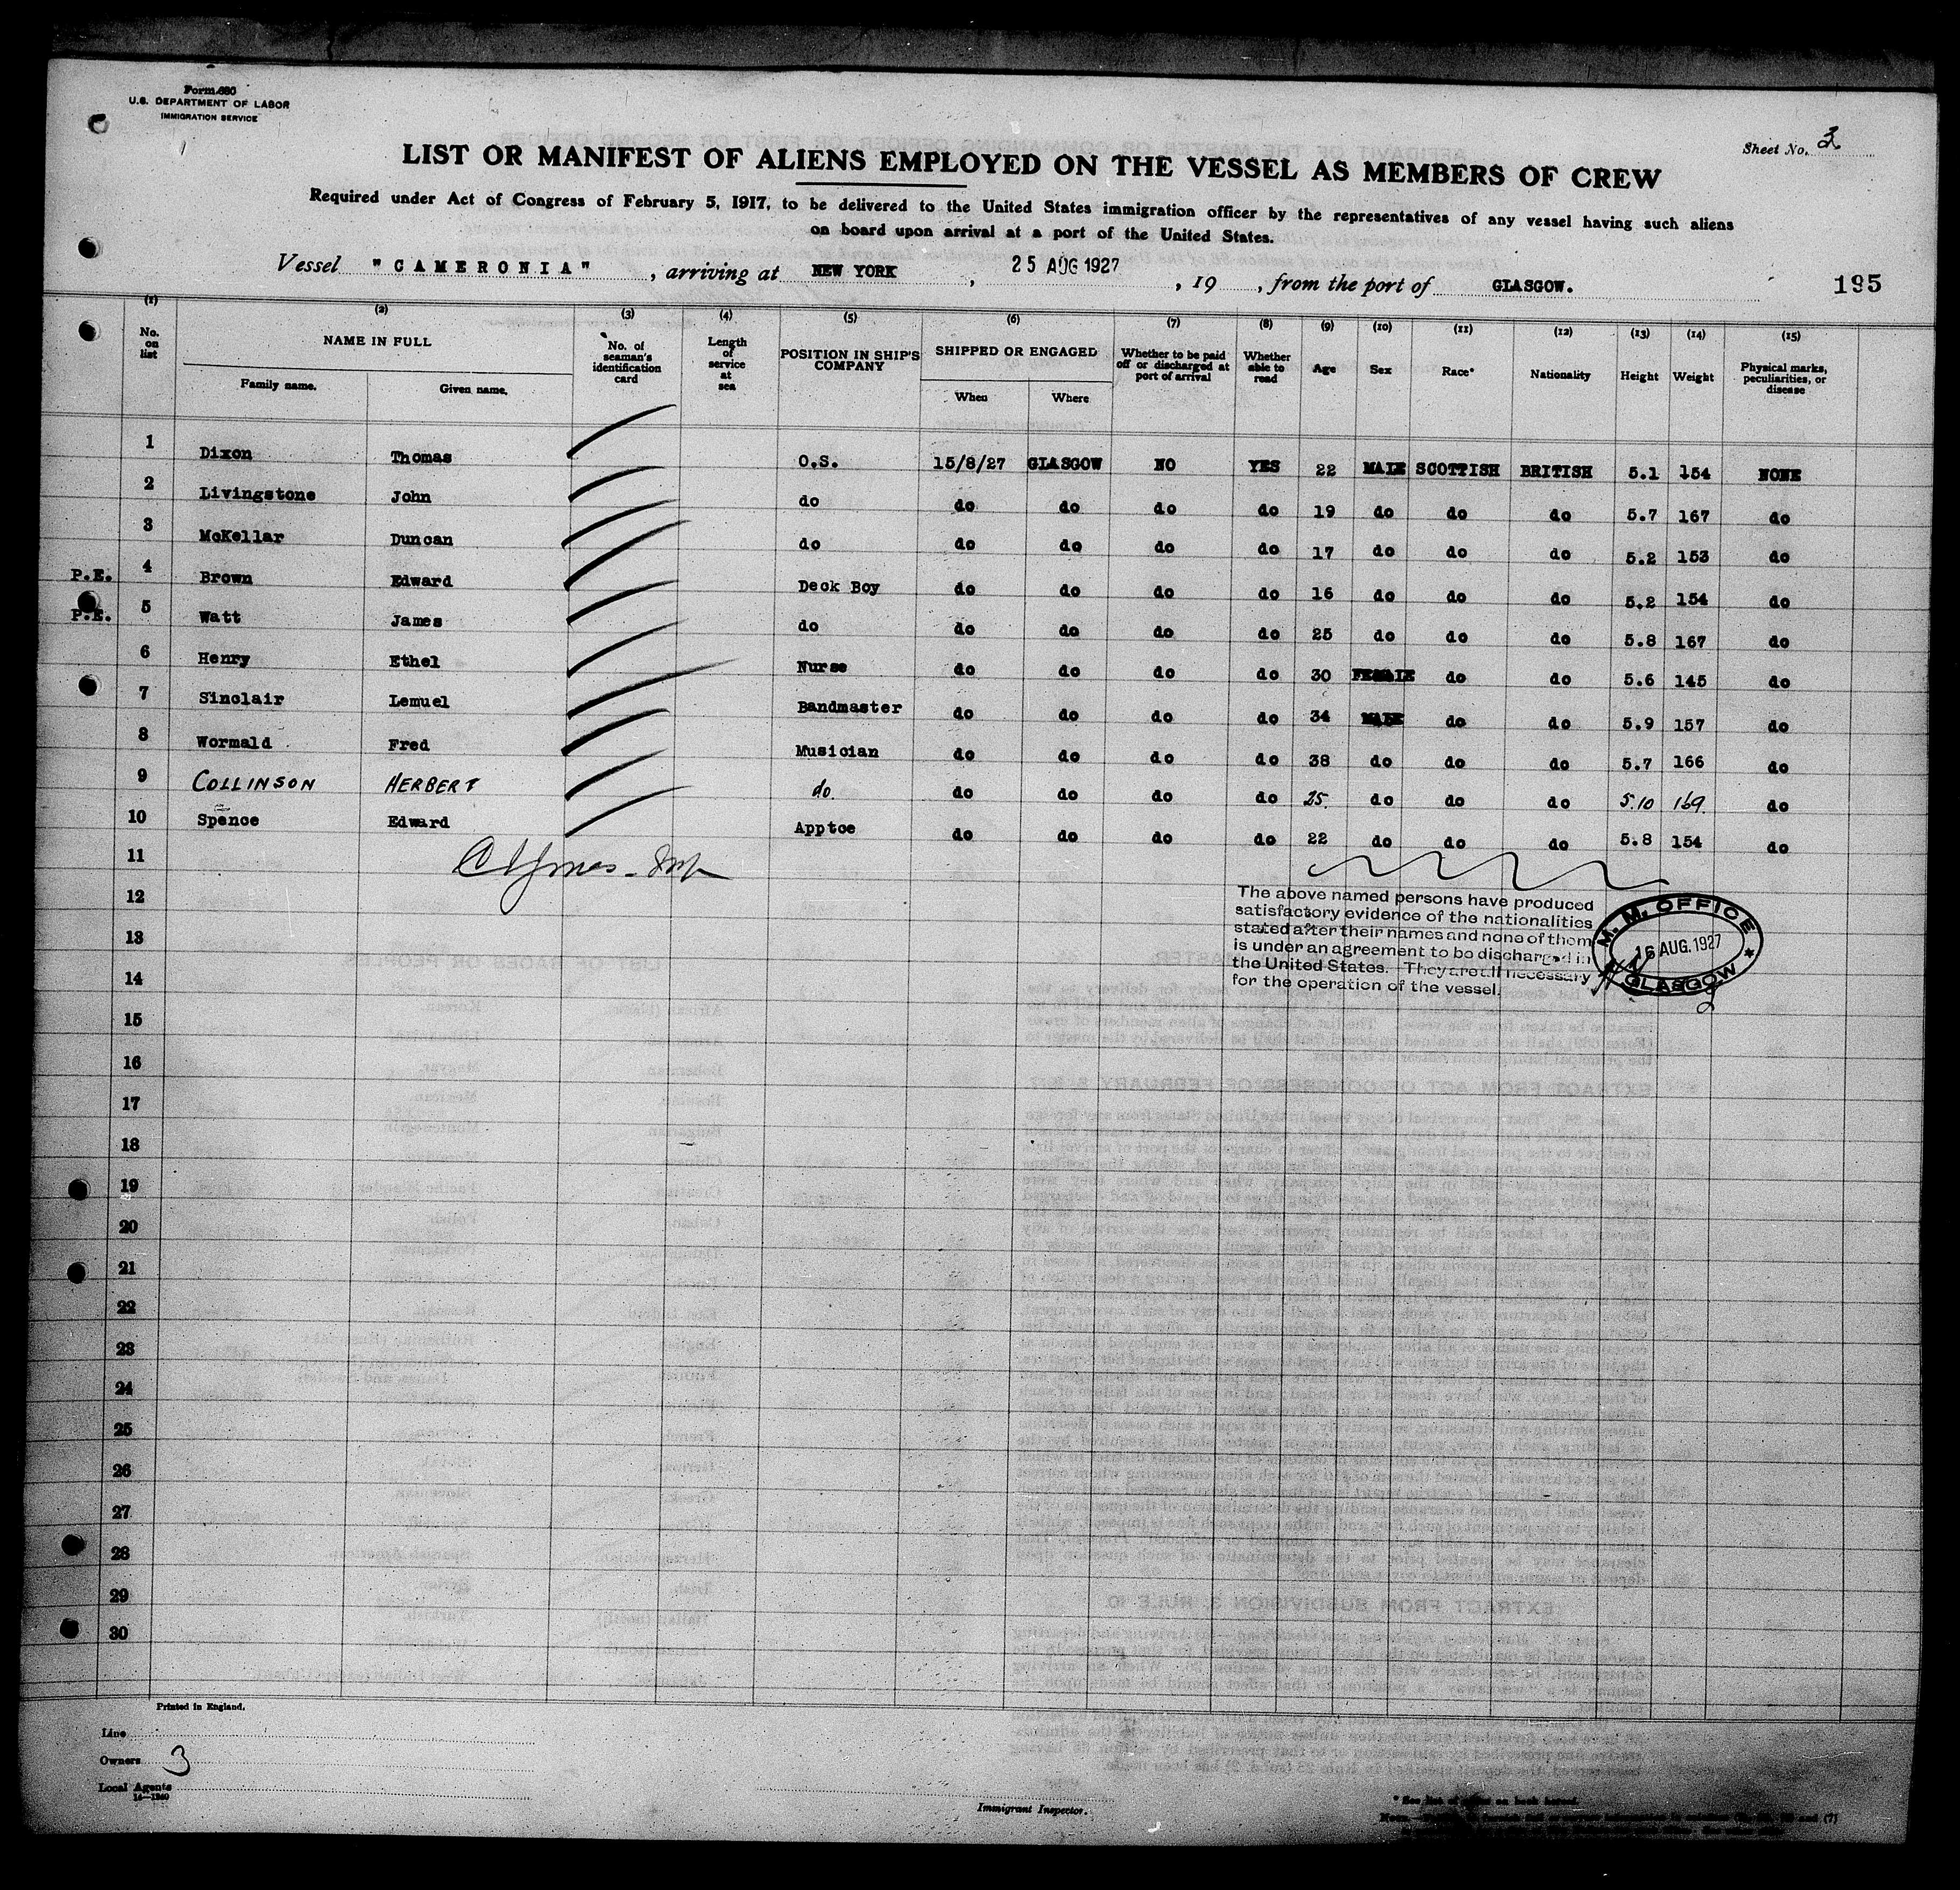 Form 680
U.S. DEPARTMENT OF LABOR
IMMIGRATION SERVICE
Sheet No. 3
LIST OR MANIFEST OF ALIENS EMPLOYED ON THE VESSEL AS MEMBERS OF CREW
Required under Act of Congress of February 5, 1917, to be delivered to the United States immigration officer by the representatives of any vessel having such aliens
on board upon arrival at a port of the United States.
Vessel "CAMERONIA", arriving at NEW YORK, 25 AUG 1927, 19 , from the port of GLASGOW. 195
(1) (2) (3) (4) (5) (6) (7) (8) (9) (10) (11) (12) (13) (14) (15)
No. on list NAME IN FULL Family name. Given name. No. of seaman's identification card Length of service at sea POSITION IN SHIP'S COMPANY SHIPPED OR ENGAGED When Where Whether to be paid off or discharged at port of arrival Whether able to read Age Sex Race* Nationality Height Weight Physical marks, peculiarities, or disease
1 Dixon Thomas O.S. 15/8/27 GLASGOW NO YES 22 MALE SCOTTISH BRITISH 5.1 154 NONE
2 Livingstone John do do do do do 19 do do do 5.7 167 do
3 McKellar Duncan do do do do do 17 do do do 5.2 153 do
P.E. 4 Brown Edward Deck Boy do do do do 16 do do do 5.2 154 do
P.E. 5 Watt James do do do do do 25 do do do 5.8 167 do
6 Henry Ethel Nurse do do do do 30 FEMALE do do 5.6 145 do
7 Sinclair Lemuel Bandmaster do do do do 34 MALE do do 5.9 157 do
8 Wormald Fred Musician do do do do 38 do do do 5.7 166 do
9 COLLINSON HERBERT do. do do do do 25. do do do 5.10 169. do
10 Spence Edward Apptce do do do do 22 do do do 5.8 154 do
11
12
13
14
15
16
17
18
19
20
21
22
23
24
25
26
27
28
29
30
The above named persons have produced
satisfactory evidence of the nationalities
stated after their names and none of them
is under an agreement to be discharged in
the United States. They are all necessary
for the operation of the vessel.
M. M. OFFICE
16 AUG. 1927
GLASGOW
Printed in England.
Line
Owners 3
Local Agents
14—1240
Immigrant Inspector.
* See list of races on back hereof.